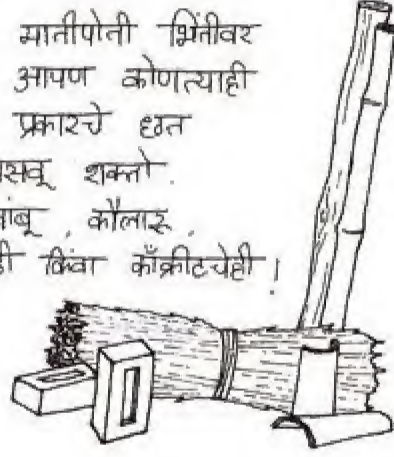 मातीपोती भिंतीवर
आपण कोणत्याही
प्रकारचे छत
शकतो.
कौलारू,
किंवा काँक्रीटचेही !